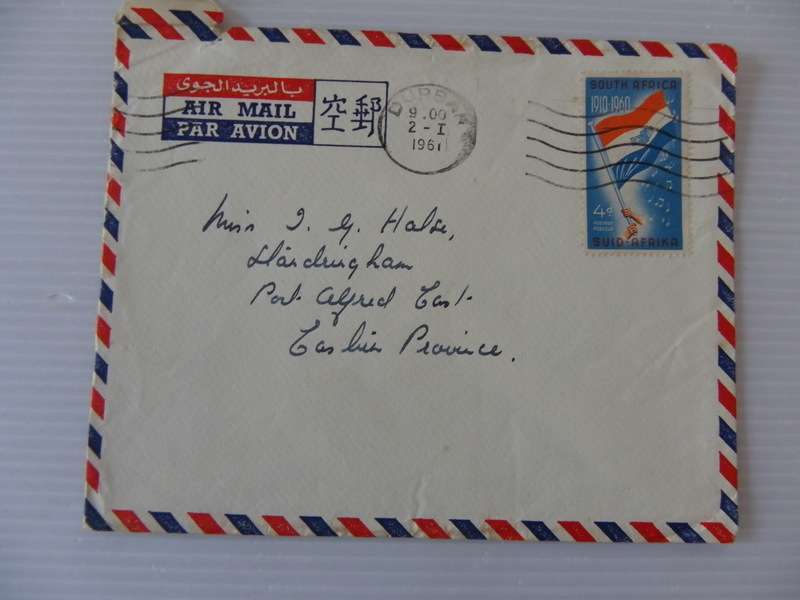 بالبريد الجوى
AIR MAIL
PAR AVION
空郵
DURBAN
9.00
2-I
1961
SOUTH AFRICA
1910-1960
4d
SUID-AFRIKA
Miss I. G. Halse,
Standringham
Port Alfred East
Eastern Province.